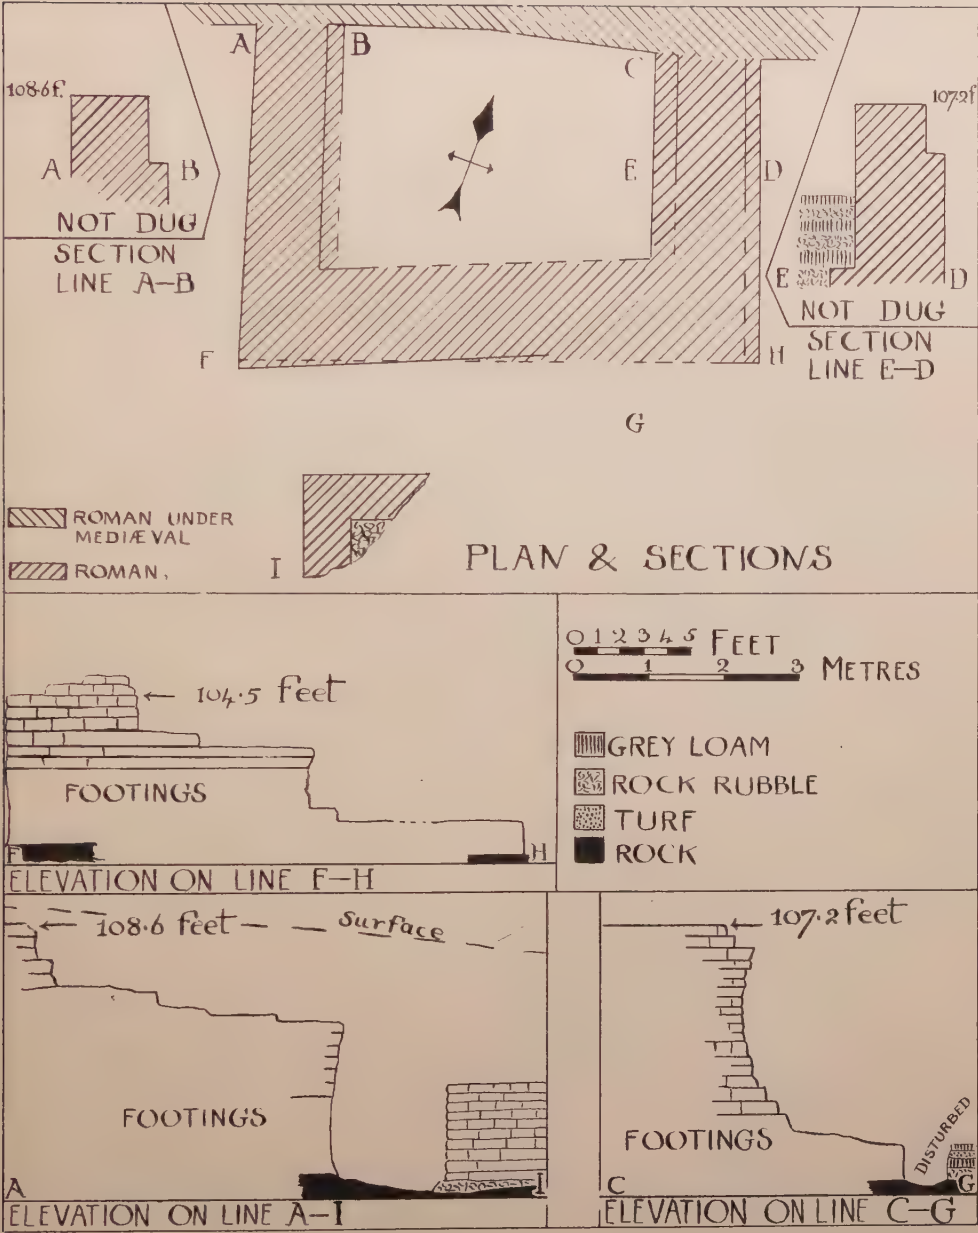 A
B
C
108·6f.
A B
NOT DUG
SECTION
LINE A–B
E
D
107·2f
E D
NOT DUG
SECTION
LINE E–D
F
H
G
ROMAN UNDER
MEDIÆVAL
ROMAN,
I
PLAN & SECTIONS
104·5 feet
FOOTINGS
F H
ELEVATION ON LINE F–H
0 1 2 3 4 5 FEET
0 1 2 3 METRES
GREY LOAM
ROCK RUBBLE
TURF
ROCK
108·6 feet
Surface
FOOTINGS
A I
ELEVATION ON LINE A–I
107·2 feet
FOOTINGS
DISTURBED
C G
ELEVATION ON LINE C–G